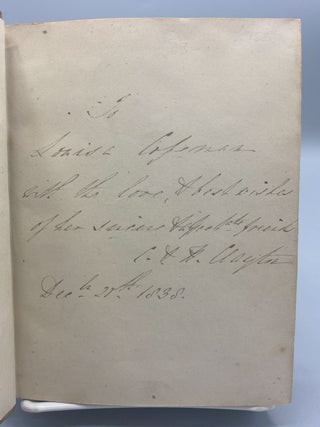 To
Louisa Copeman
with the love, & best wishes
of her sincere & affectate friend
C. & H. Clayton
Decbr 1838.